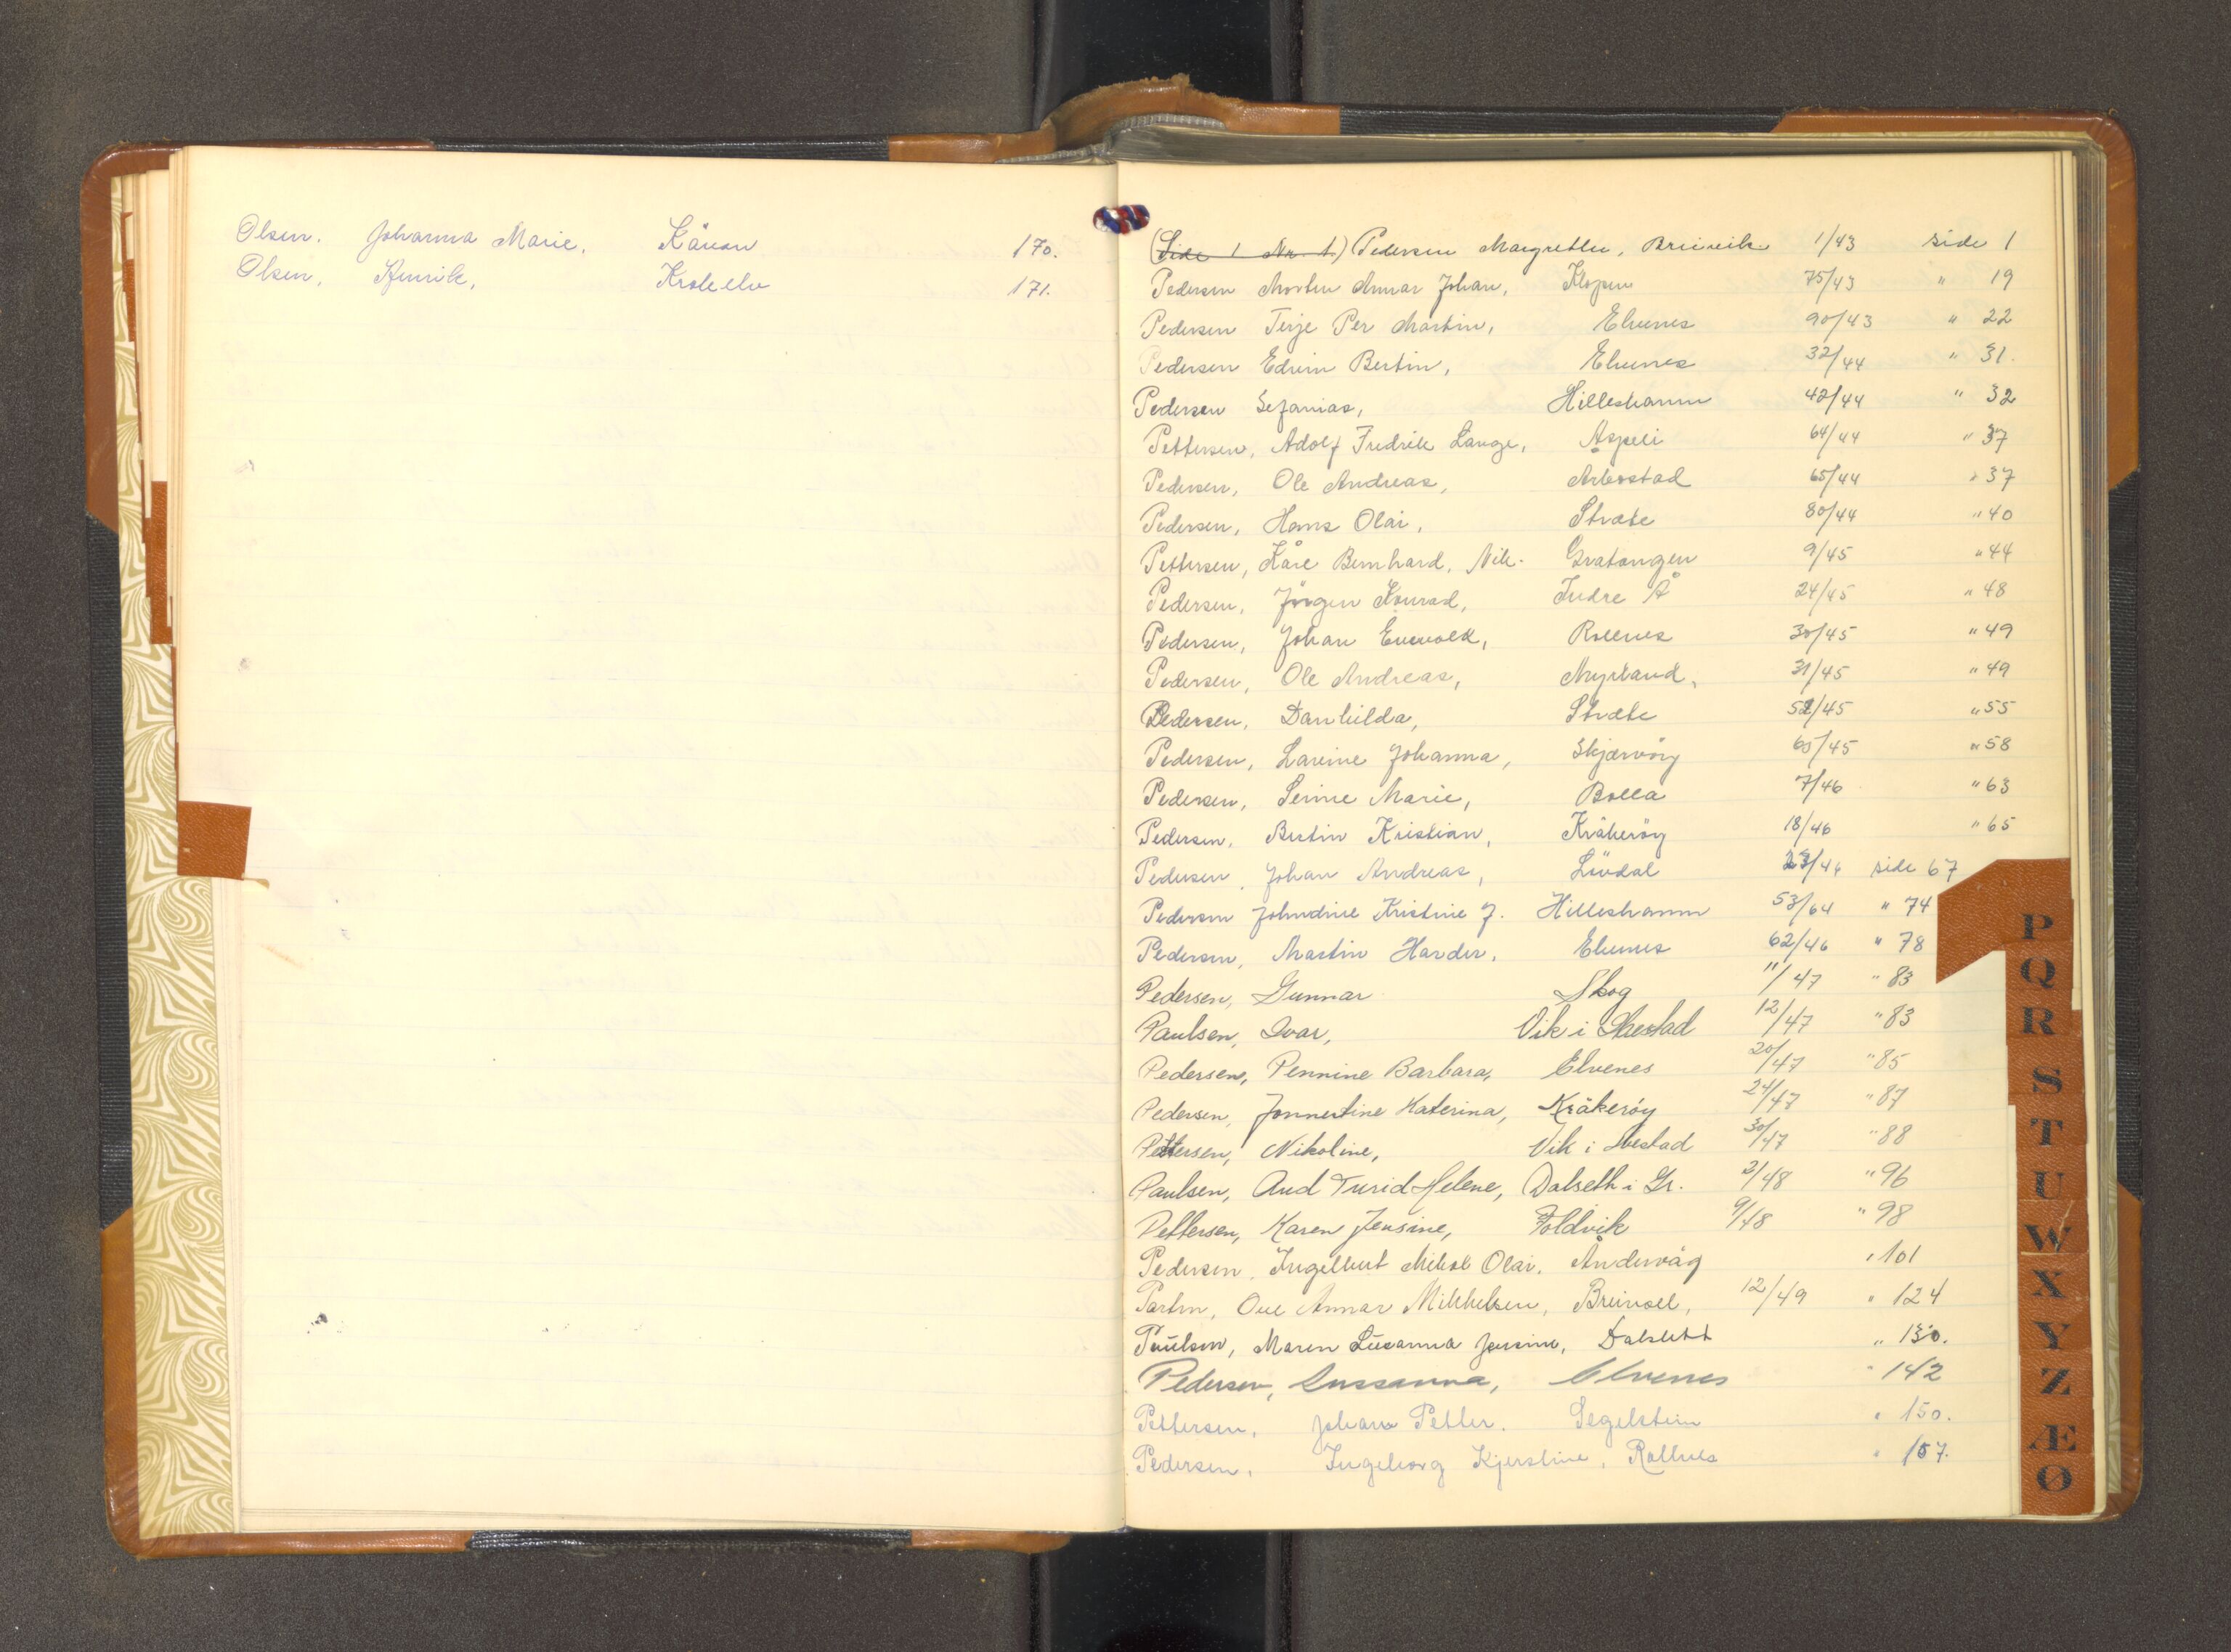 Olsen. Johanna Marie. Kånan 170.
Olsen, Henrik, Krokelv 171.
(Side 1 Nr. 1.) Pedersen Margrethe, Breivik 1/43 side 1
Pedersen Morten Annar Johan, Klopen 75/43 " 19
Pedersen Terje Per Martin, Elvenes 90/43 " 22
Pedersen Edvin Bertin, Elvenes 32/44 " 31.
Pedersen Sefanias, Hilleshamn 42/44 " 32
Pettersen, Adolf Fredrik Lange, Aspeli 64/44 " 37
Pedersen, Ole Andreas, Arbostad 65/44 " 37
Pedersen, Hans Olai, Stræte 80/44 " 40
Pettersen, Kåre Bernhard, Nik. Gratangen 9/45 " 44
Pedersen, Jörgen Konrad, Indre Å 24/45 " 48
Pedersen, Johan Enevold, Rollnes 30/45 " 49
Pedersen, Ole Andreas, Myrland, 31/45 " 49
Pedersen, Danhilda, Stræte 52/45 " 55
Pedersen, Lavine Johanna, Skjærvöy 65/45 " 58
Pedersen, Serine Marie, Bolla 7/46 " 63
Pedersen, Bertin Kristian, Kråkeröy 18/46 " 65
Pedersen, Johan Andreas, Lövdal 23/46 side 67
Pedersen Johndine Kristine J. Hilleshamn 53/64 " 74
Pedersen, Martin Harder, Elvenes 62/46 " 78
Pedersen, Gunnar Skog 11/47 " 83
Paulsen, Ivar, Vik i Ibestad 12/47 " 83
Pedersen, Pennine Barbara, Elvenes 20/47 " 85
Pedersen, Jonnertine Katerina, Kråkeröy 24/47 " 87
Pettersen, Nikoline, Vik i Ibestad 30/47 " 88
Paulsen, Aud Turid Helene, Dalseth i Gr. 2/48 " 96
Pettersen, Karen Jensine, Foldvik 9/48 " 98
Pedersen, Ingelbert Mikal Olai. Åndervåg " 101
Parten, Ove Annar Mikkelsen, Breivoll, 12/49 " 124
Paulsen, Maren Susanna Jensine, Dalslett " 130.
Pedersen, Sussanna, Elvenes " 142
Pettersen, Johan Petter. Segelstein " 150.
Pedersen, Ingeborg Kjerstine, Rollnes " 157.
P
Q
R
S
T
U
W
X
Y
Z
Æ
Ø